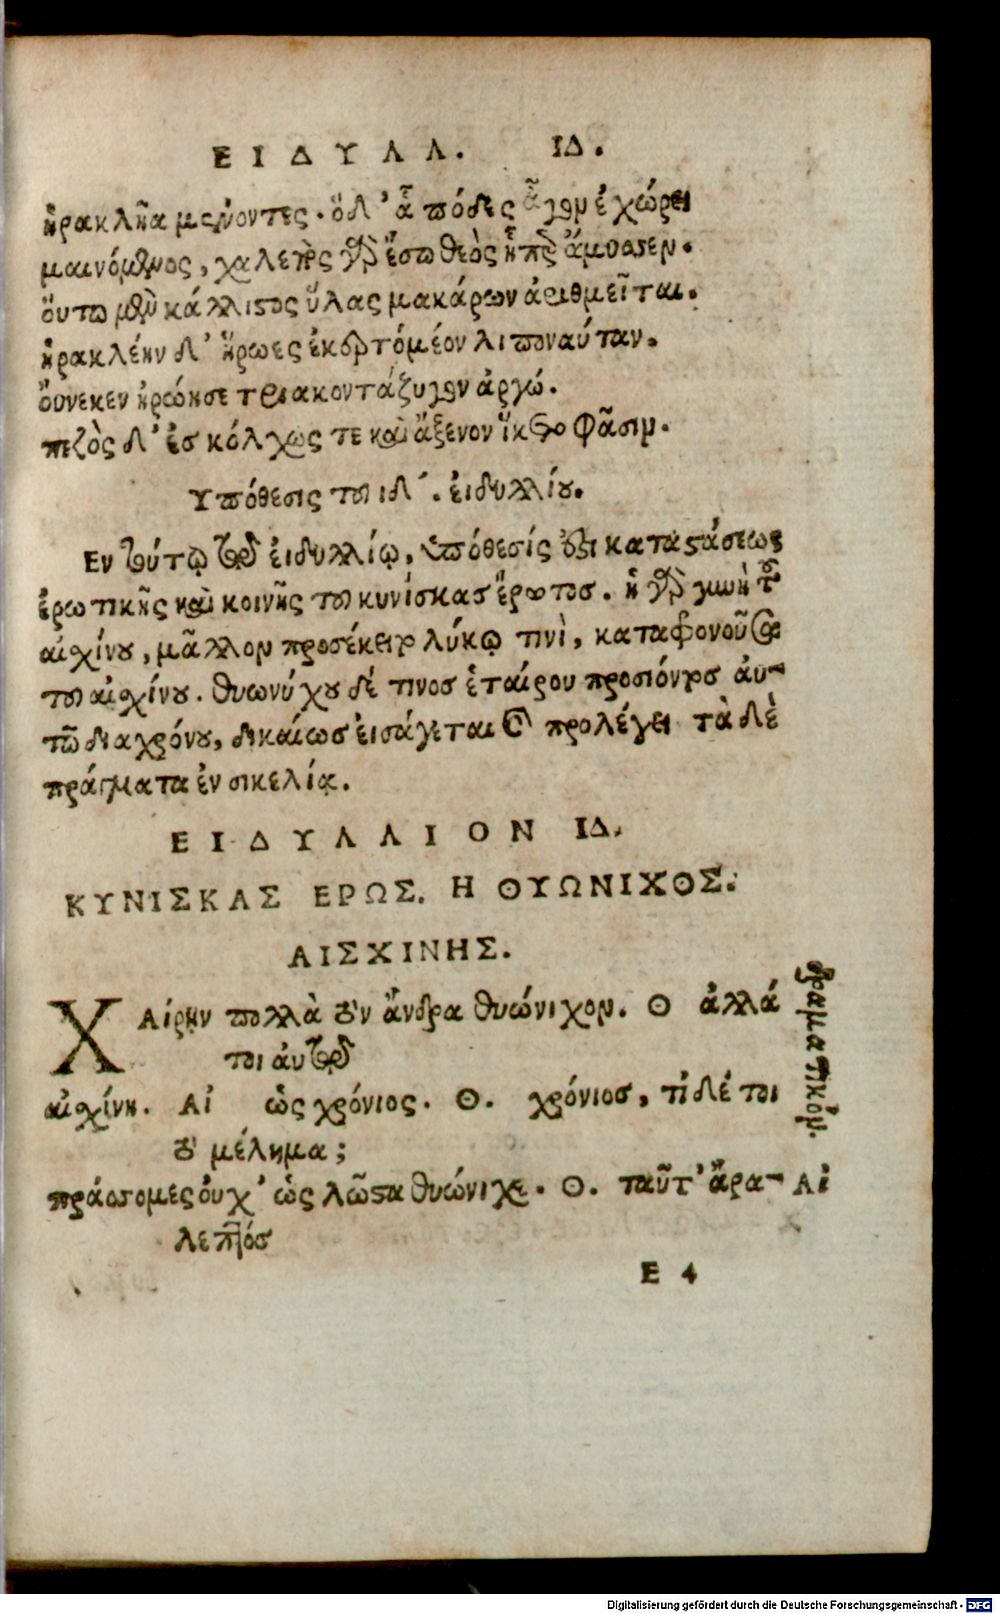 ΕΙΔΥΛΛ. ΙΔ.
ἡρακλῆα μένοντες. ὁ δ' ἇ πόδες ἆγον ἐχώρει
μαινόμενος, χαλεπὸς γὰρ ἔσω θεὸς ἧπαρ ἄμυσσεν.
οὕτω μὲν κάλλιστος ὕλας μακάρων ἀριθμεῖται.
ἡρακλέην δ' ἥρωες ἐκερτόμεον λιποναύταν.
οὕνεκεν ἠρώησε τριακοντάζυγον ἀργώ.
πεζὸς δ' ἐς κόλχως τε καὶ ἄξενον ἵκετο φᾶσιν.
Υπόθεσις τοῦ ιδ'. ἐιδυλλίου.
Εν τούτῳ τῷ ἐιδυλλίῳ, ὑπόθεσίς ἐστι καταστάσεως
ἐρωτικῆς καὶ κοινῆς τοῦ κυνίσκας ἔρωτος. ἡ γὰρ γυνὴ τοῦ
αἰσχίνου, μᾶλλον προσέκειτο λύκῳ τινὶ, καταφρονοῦσα
τοῦ αἰσχίνου. θυωνύχου δέ τινος ἑταίρου προσιόντος ἀυ-
τῷ διαχρόνου, δικαίως ἐισάγεται καὶ προλέγει τὰ δὲ
πράγματα ἐν σικελίᾳ.
ΕΙΔΥΛΛΙΟΝ ΙΔ.
ΚΥΝΙΣΚΑΣ ΕΡΩΣ. Η ΘΥΩΝΙΧΟΣ.
ΑΙΣΧΙΝΗΣ.
ΧΑίρειν πολλὰ τὸν ἄνδρα θυώνιχον. Θ ἀλλά
τοι ἀυτῷ
δραματικόν.
αἰσχίνη. Αἰ ὡς χρόνιος. Θ. χρόνιος, τί δέ τοι
τὸ μέλημα;
πράσσομες ὀυχ' ὡς λῶστα θυώνιχε. Θ. ταῦτ' ἄρα Αἰ
λεπτός
Ε 4
Digitalisierung gefördert durch die Deutsche Forschungsgemeinschaft - DFG